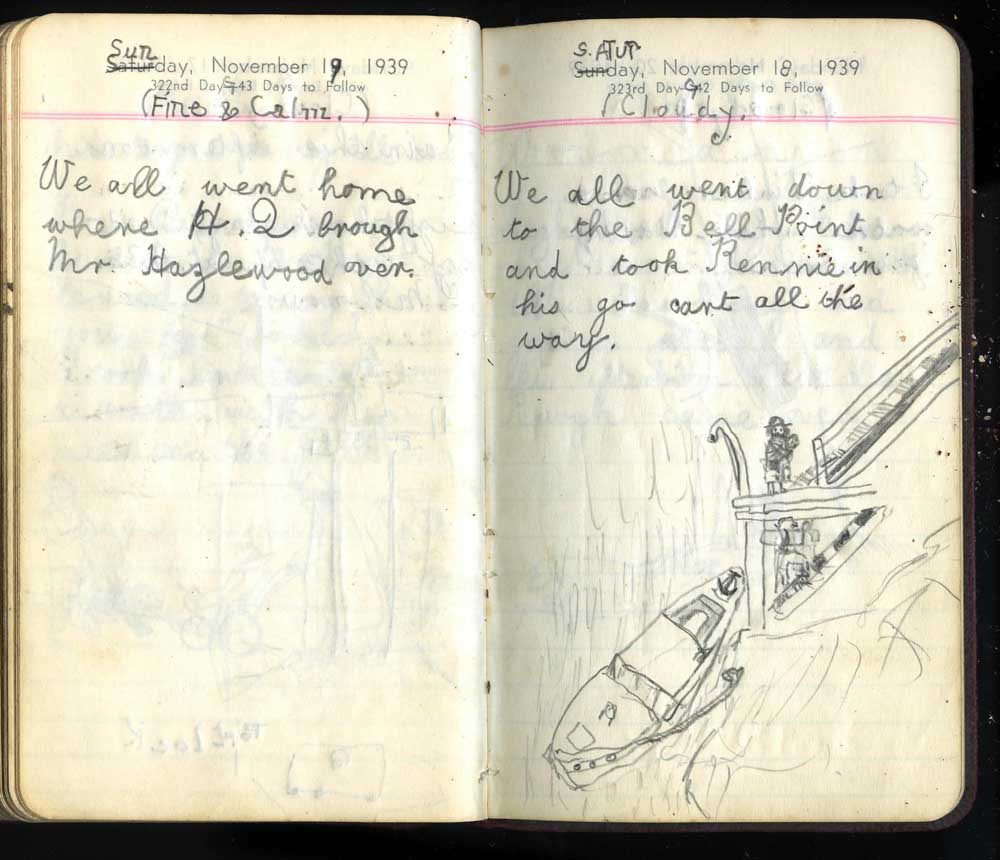 Sun
Saturday, November 19, 1939
322nd Day—43 Days to Follow
(Fine & Calm.)
We all went home
where H.Q brough
Mr Hazlewood over.
S.ATUR
Sunday, November 18, 1939
323rd Day—42 Days to Follow
(Cloudy.)
We all went down
to the Bell Point
and took Rennie in
his go cart all the
way.